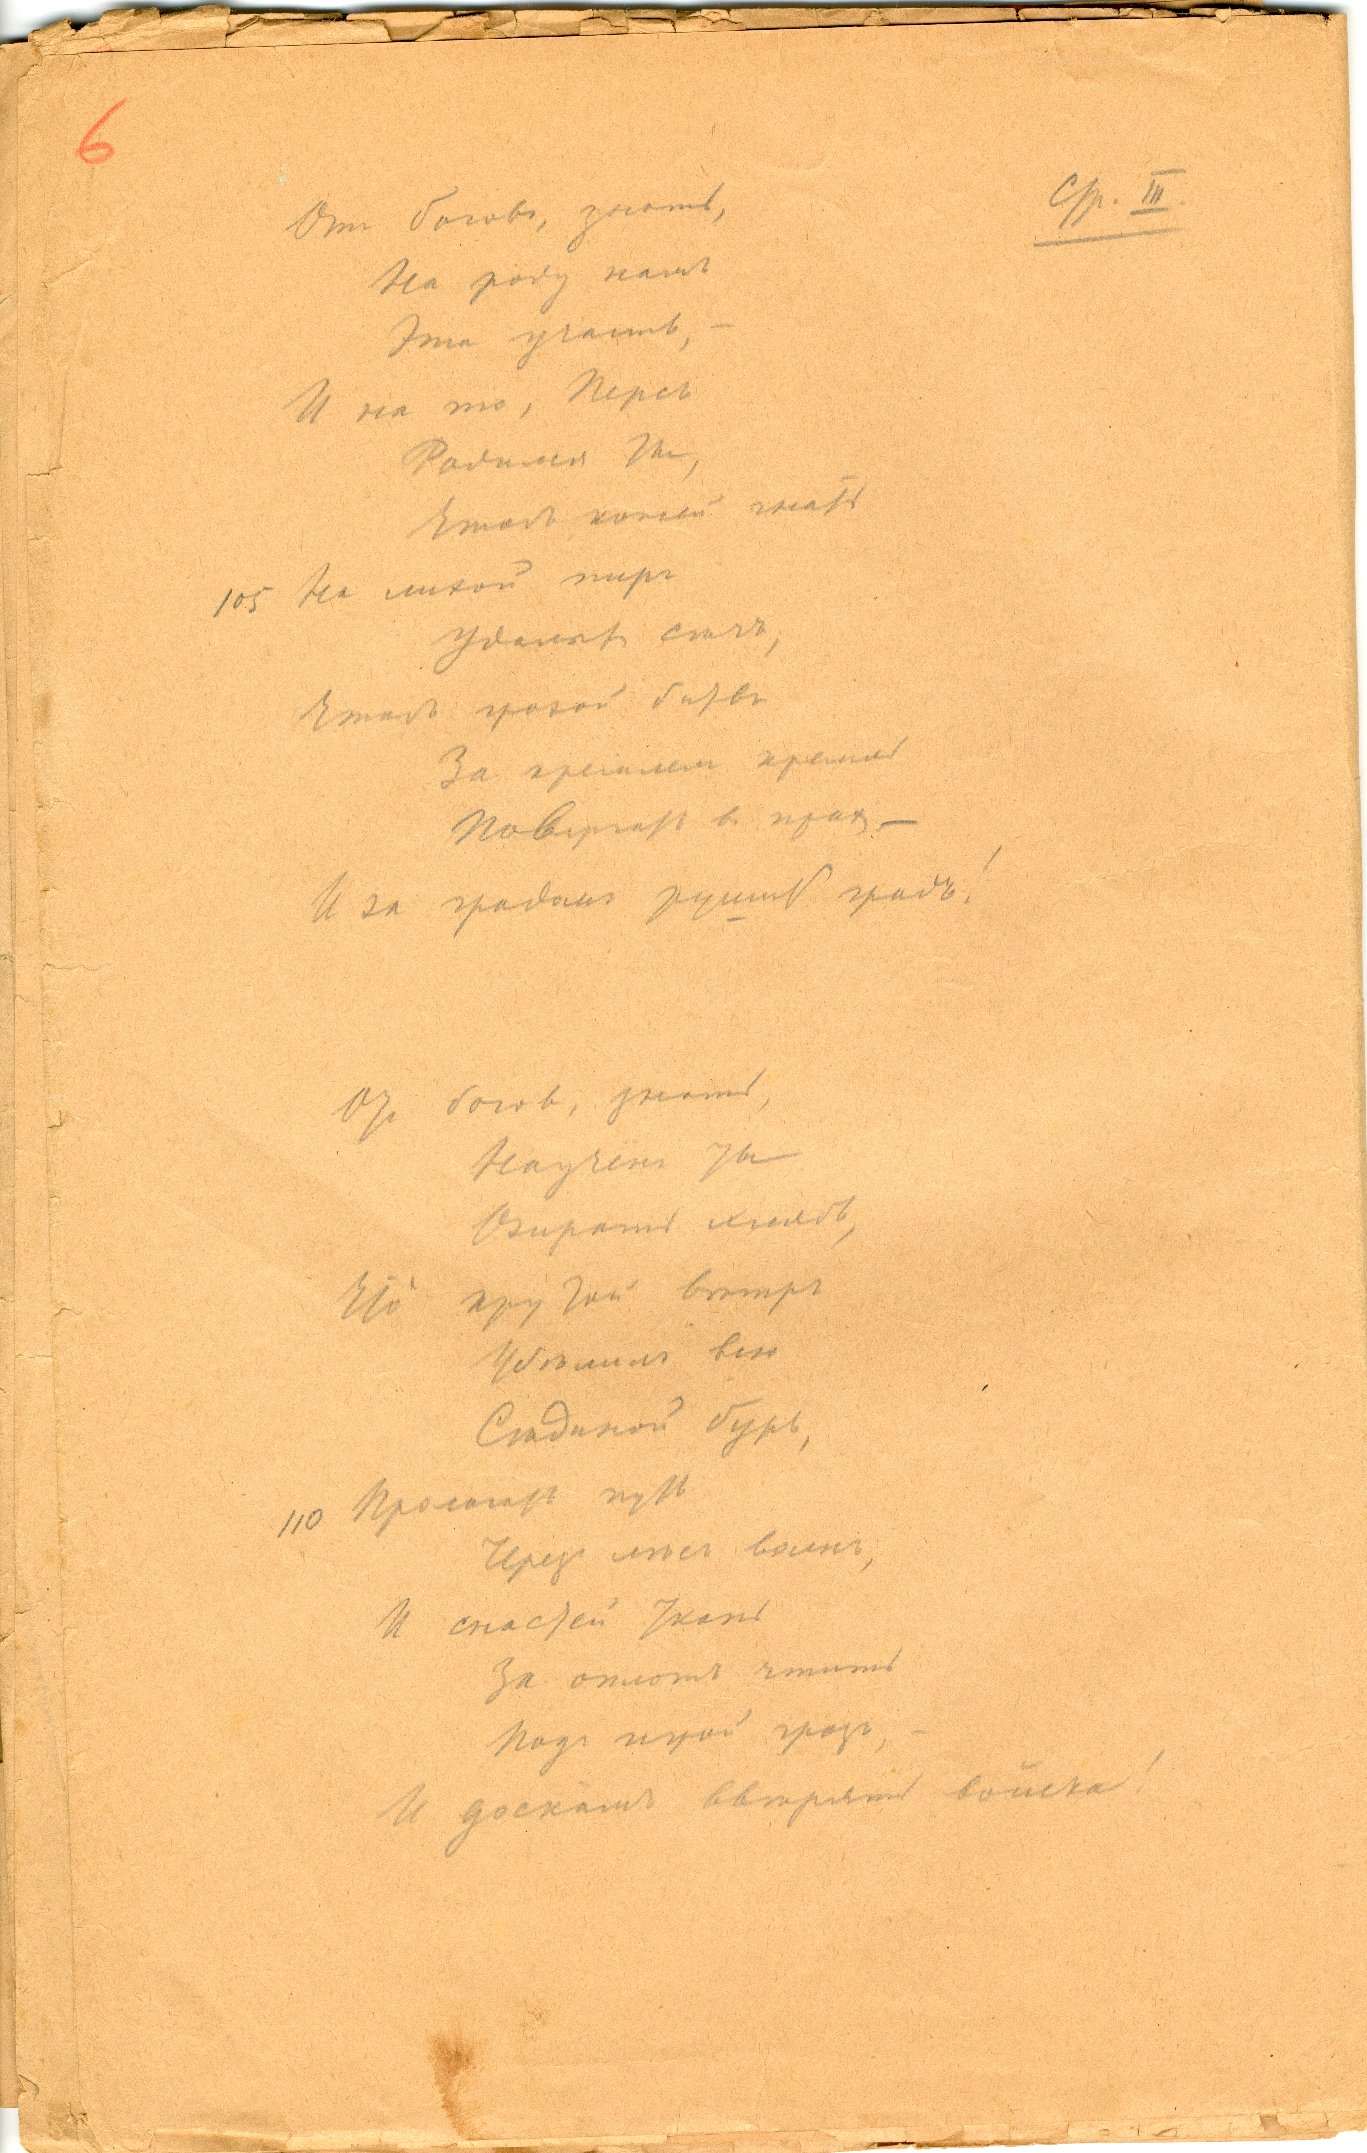 6
Стр. III.
Отъ боговъ, знать,
На роду намъ
Эта участь, –
И на то, Персъ
Родился ты,
Чтобъ коней гнать
105 На лихой пиръ
Удалыхъ сѣчъ,
Чтобъ грозой битвъ
За кремлемъ кремль
Повергать въ прахъ, –
И за градомъ рушить градъ!
Отъ боговъ, знать,
Наученъ ты
Озирать хлябь,
Что крутой вѣтръ
Убѣлилъ всю
Сѣдиной бурь,
110 Пролагать путь
Чрезъ лѣсъ волнъ,
И снастей ткань
За оплотъ чтить
Подъ игрой грозъ, –
И доскамъ ввѣрять войска!